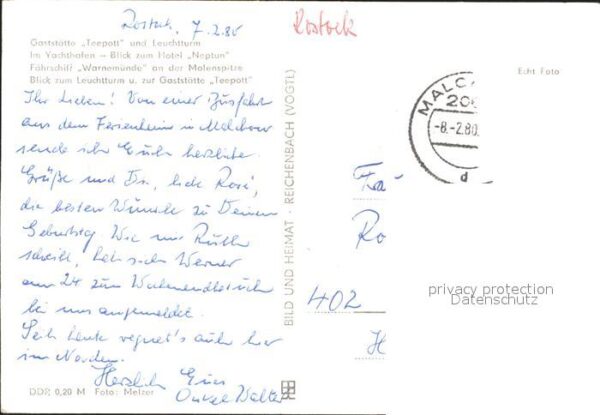 Rostock, 7.2.80
Rostock
Gaststätte „Teepott" und Leuchtturm
Im Yachthafen – Blick zum Hotel „Neptun"
Fährschiff „Warnemünde" an der Molenspitze
Blick zum Leuchtturm u. zur Gaststätte „Teepott"
Echt Foto
Ihr Lieben! Von einer Busfahrt
aus dem Ferienheim in Malchow
sende ich Euch herzliche
Grüße und Dir, liebe Rosi,
die besten Wünsche zu Deinem
Geburtstag. Wie uns Ruth
schreibt, hat sich Werner
am 24. zum Wochenendbesuch
bei uns angemeldet.
Seit heute regnet's auch hier
im Norden.
Herzlich Euer
Onkel Walter
DDR 0,20 M Foto: Melzer
BILD UND HEIMAT · REICHENBACH (VOGTL)
MALC
20
-8.-2.80
d
Fa
Ro
402
H
privacy protection
Datenschutz